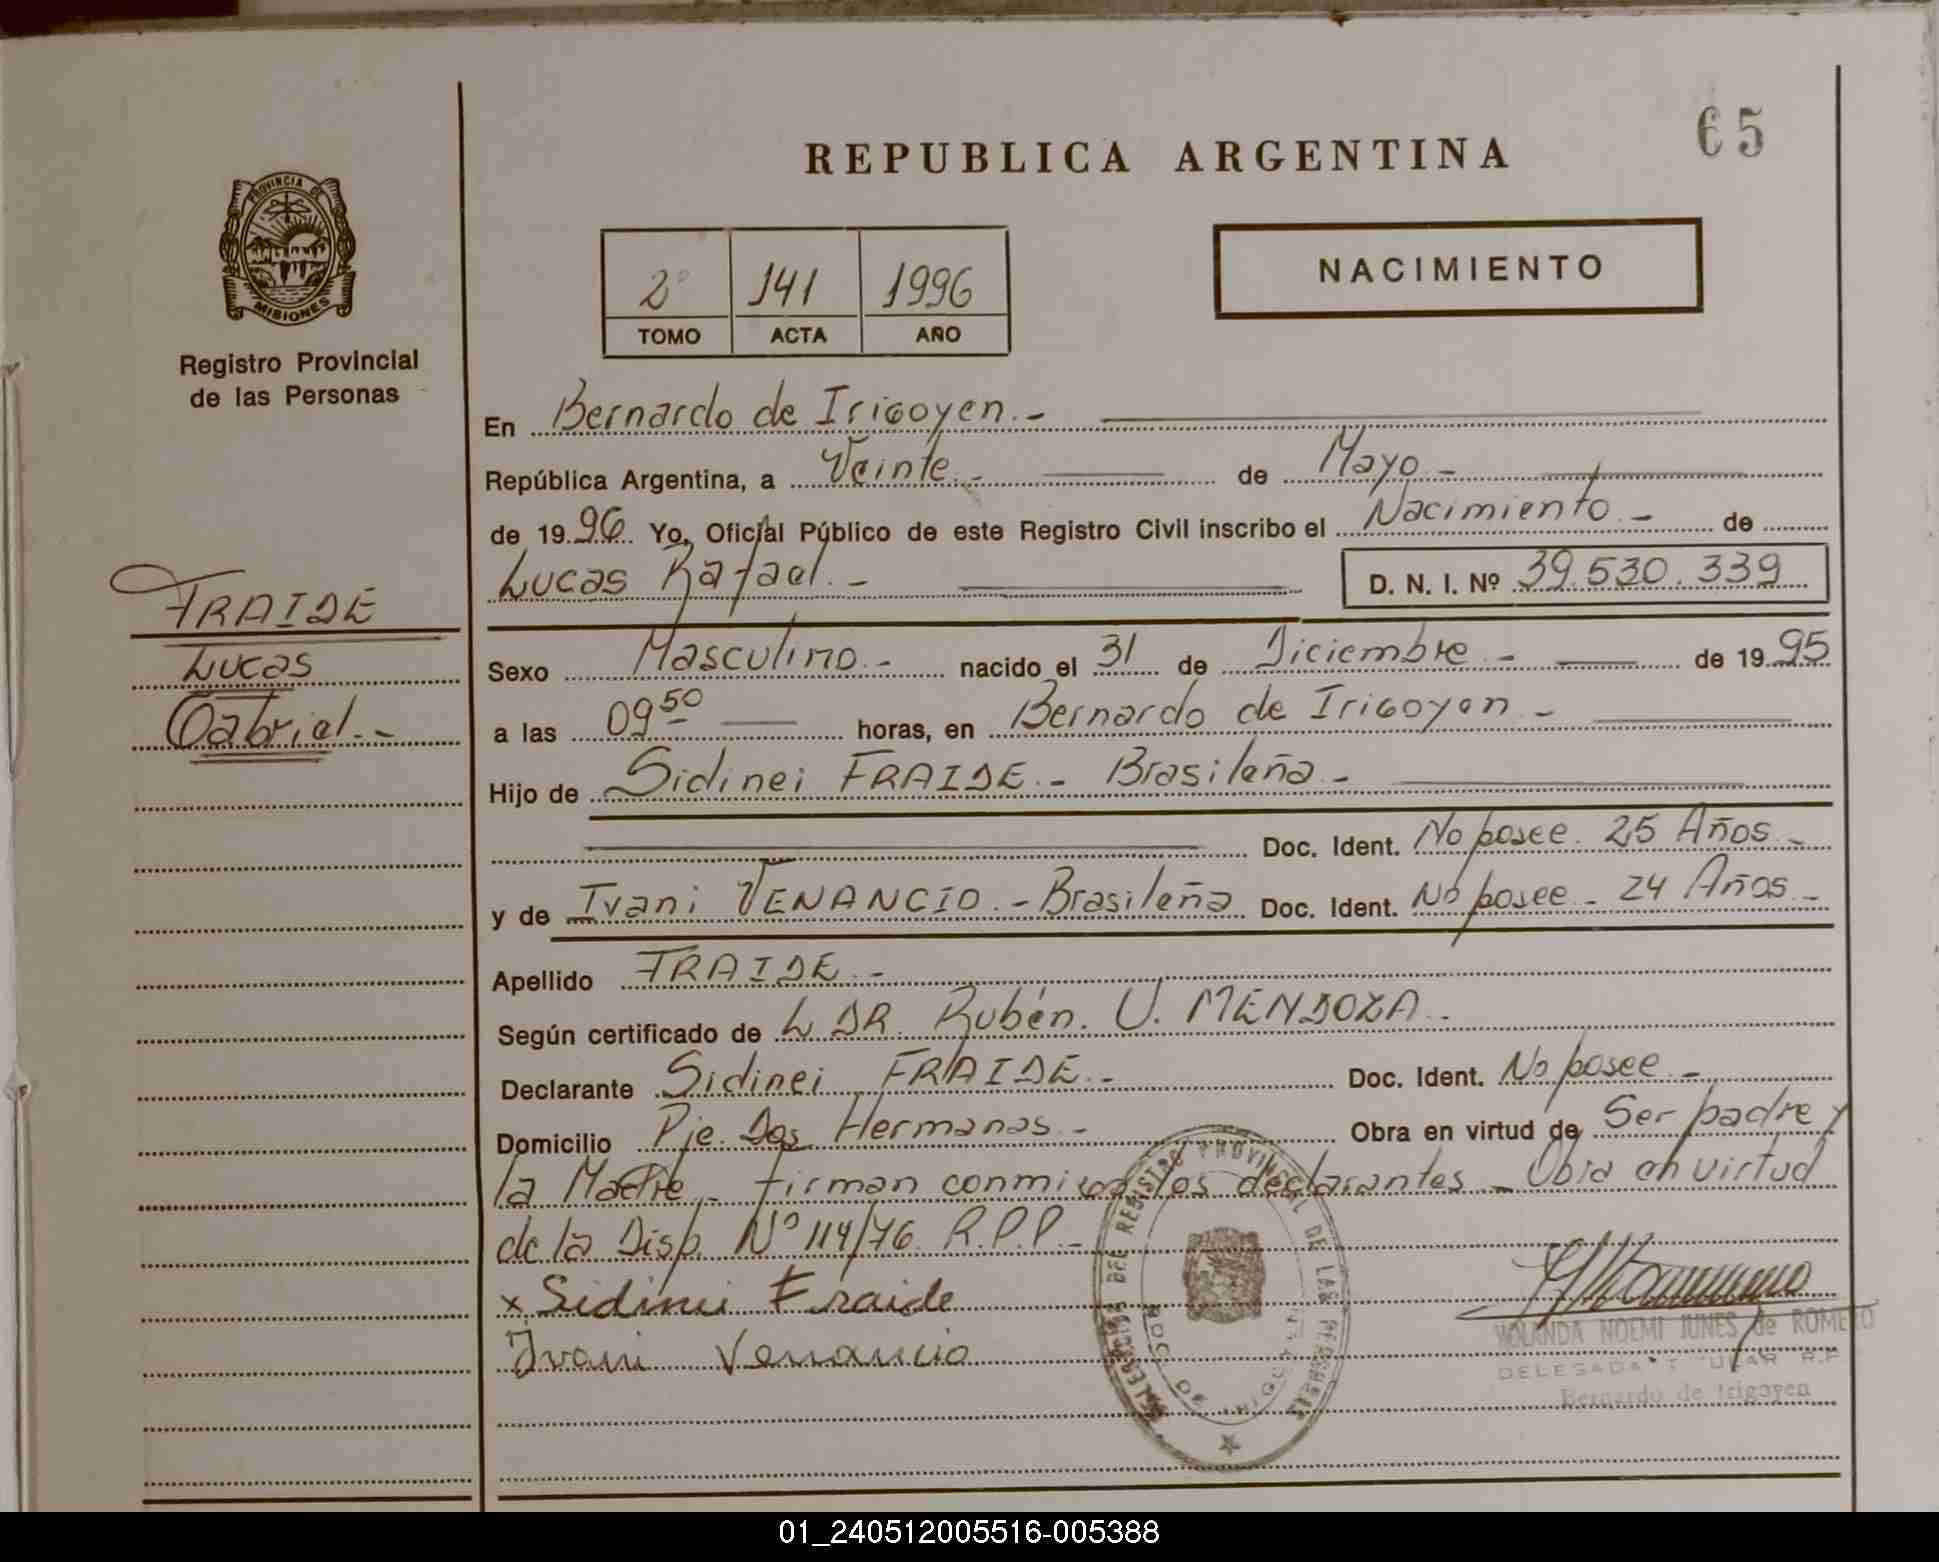 65
REPUBLICA ARGENTINA
PROVINCIA DE
MISIONES
Registro Provincial
de las Personas
NACIMIENTO
2º 141 1996
TOMO ACTA AÑO
En Bernardo de Irigoyen.-
República Argentina, a Veinte.- de Mayo.-
de 1996. Yo, Oficial Público de este Registro Civil inscribo el Nacimiento.- de
Lucas Rafael.- D. N. I. Nº 39.530.339
FRAIDE
Lucas
Gabriel.-
Sexo Masculino.- nacido el 31 de Diciembre.- de 1995
a las 09 50 horas, en Bernardo de Irigoyen.-
Hijo de Sidinei FRAIDE.- Brasileña.-
Doc. Ident. No posee. 25 Años.-
y de Ivani VENANCIO.- Brasileña Doc. Ident. No posee.- 24 Años.-
Apellido FRAIDE.-
Según certificado de L DR. Rubén. U. MENDOZA.-
Declarante Sidinei FRAIDE.- Doc. Ident. No posee.-
Domicilio Pje. Dos Hermanas.- Obra en virtud de Ser padre y
la Madre.- Firman conmigo los declarantes.- Obra en virtud
de la Disp. Nº 114/76 R.P.P.-
x Sidinei Fraide
Ivani Venancio
REGISTRO PROVINCIAL DE LAS PERSONAS
YOLANDA NOEMI JUNES de ROMERO
DELEGADA R.P
Bernardo de Irigoyen
01_240512005516-005388